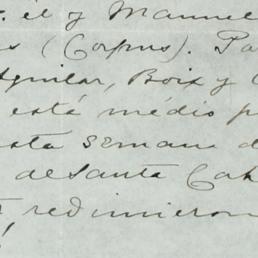 él y Manuel
(Corpus). Pa
Aguilar, Boix y
está médio p
esta semana d
de Santa Cat
redimieron
!